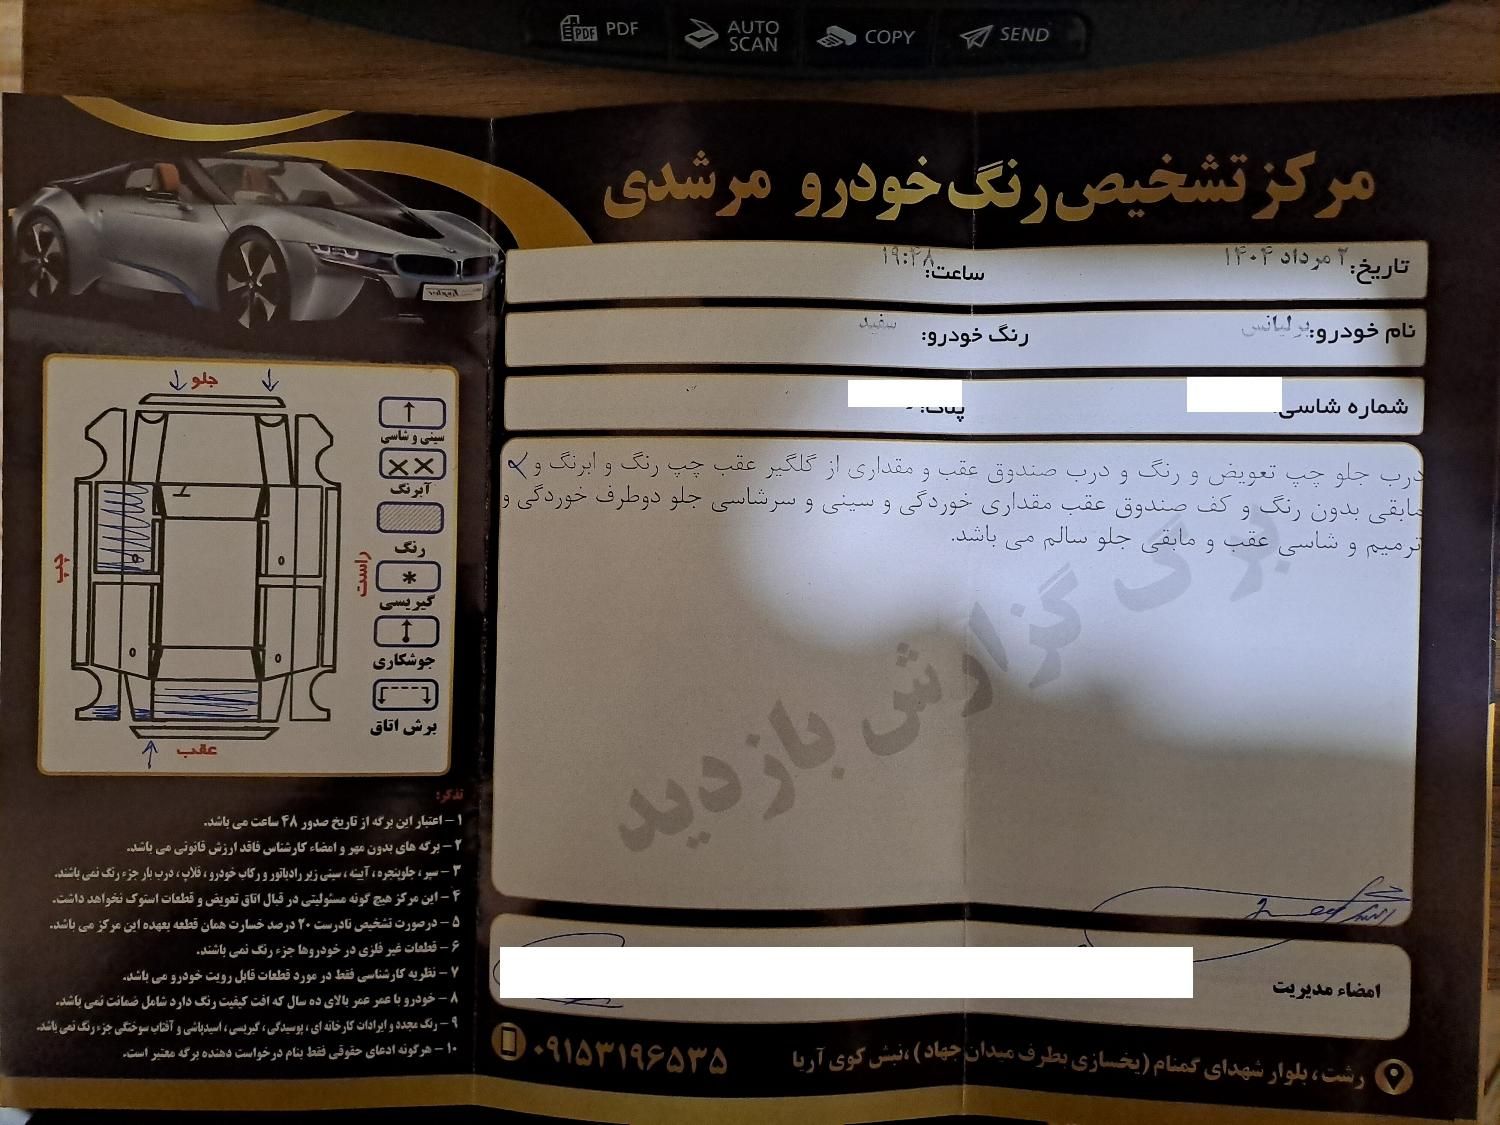 PDF
AUTO SCAN
COPY
SEND
مرکز تشخیص رنگ خودرو مرشدی
تاریخ: ۲ مرداد ۱۴۰۴ ساعت: ۱۹:۴۸
نام خودرو: برلیانس رنگ خودرو: سفید
شماره شاسی: پلاک:
درب جلو چپ تعویض و رنگ و درب صندوق عقب و مقداری از گلگیر عقب چپ رنگ و ابرنگ و
مابقی بدون رنگ و کف صندوق عقب مقداری خوردگی و سینی و سرشاسی جلو دوطرف خوردگی و
ترمیم و شاسی عقب و مابقی جلو سالم می باشد.
برگ گزارش بازدید
امضاء مدیریت
رشت، بلوار شهدای گمنام (یخسازی بطرف میدان جهاد)، نبش کوی آریا
۰۹۱۵۳۱۹۶۵۳۵
جلو
چپ
راست
عقب
سینی و شاسی
آبرنگ
رنگ
گیریسی
جوشکاری
برش اتاق
تذکر:
۱- اعتبار این برگه از تاریخ صدور ۴۸ ساعت می باشد.
۲- برگه های بدون مهر و امضاء کارشناس فاقد ارزش قانونی می باشد.
۳- سپر، جلوپنجره، آیینه، سینی زیر رادیاتور و رکاب خودرو، قلاب، درب بار جزء رنگ نمی باشند.
۴- این مرکز هیچ گونه مسئولیتی در قبال اتاق تعویض و قطعات استوک نخواهد داشت.
۵- درصورت تشخیص نادرست ۲۰ درصد خسارت همان قطعه بعهده این مرکز می باشد.
۶- قطعات غیر فلزی در خودروها جزء رنگ نمی باشند.
۷- نظریه کارشناسی فقط در مورد قطعات قابل رویت خودرو می باشد.
۸- خودرو با عمر عمر بالای ده سال که افت کیفیت رنگ دارد شامل ضمانت نمی باشد.
۹- رنگ مجدد و ایرادات کارخانه ای، پوسیدگی، گیریسی، اسیدپاشی و آفتاب سوختگی جزء رنگ نمی باشد.
۱۰- هرگونه ادعای حقوقی فقط بنام درخواست دهنده برگه معتبر است.